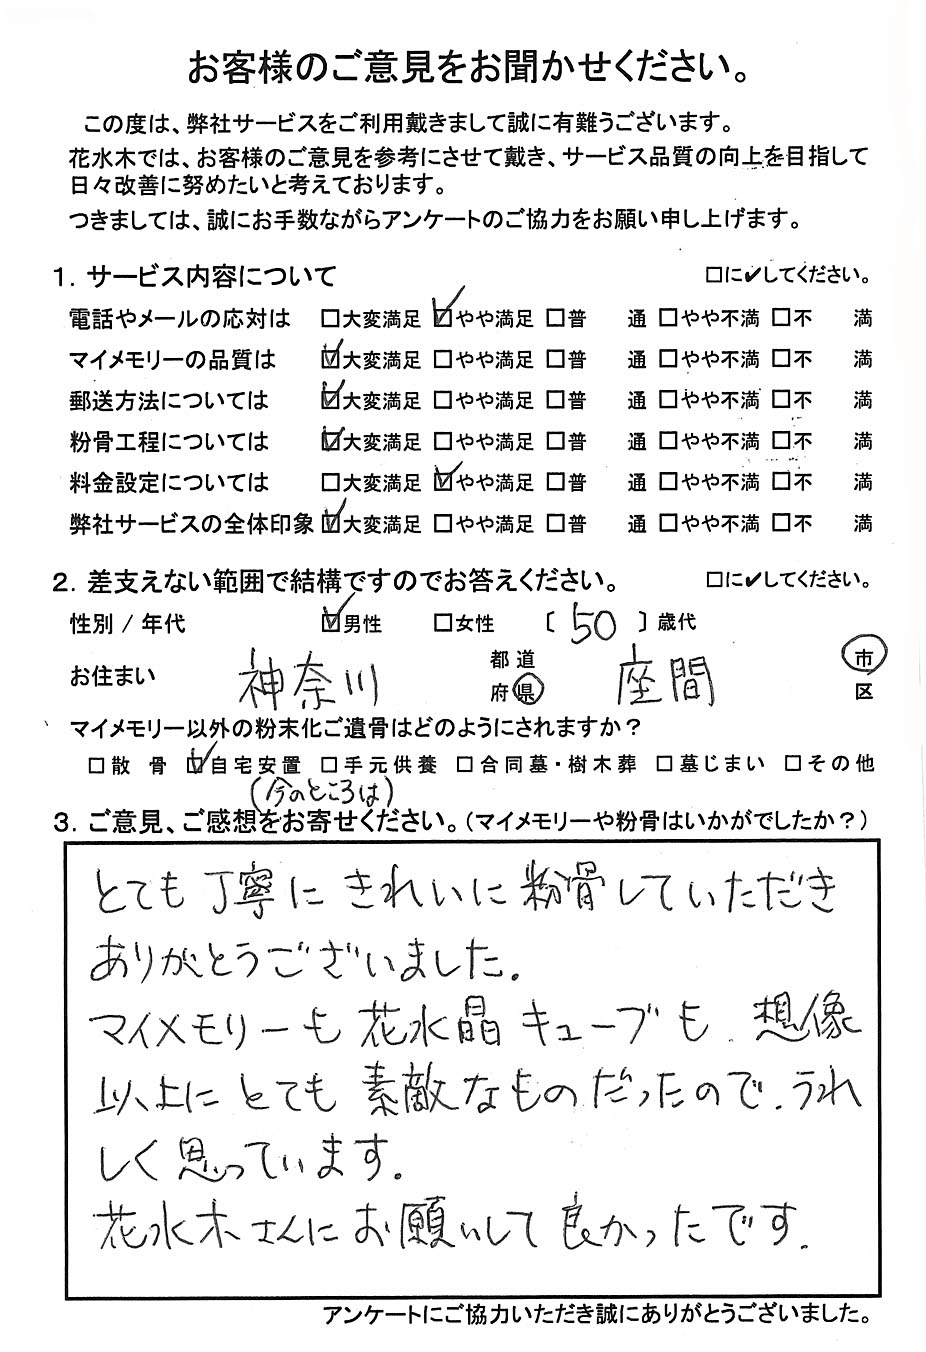 お客様のご意見をお聞かせください。
この度は、弊社サービスをご利用戴きまして誠に有難うございます。
花水木では、お客様のご意見を参考にさせて戴き、サービス品質の向上を目指して
日々改善に努めたいと考えております。
つきましては、誠にお手数ながらアンケートのご協力をお願い申し上げます。
1．サービス内容について □に✔してください。
電話やメールの応対は □大変満足 ☑やや満足 □普　通 □やや不満 □不　満
マイメモリーの品質は ☑大変満足 □やや満足 □普　通 □やや不満 □不　満
郵送方法については ☑大変満足 □やや満足 □普　通 □やや不満 □不　満
粉骨工程については ☑大変満足 □やや満足 □普　通 □やや不満 □不　満
料金設定については □大変満足 ☑やや満足 □普　通 □やや不満 □不　満
弊社サービスの全体印象 ☑大変満足 □やや満足 □普　通 □やや不満 □不　満
2．差支えない範囲で結構ですのでお答えください。 □に✔してください。
性別 / 年代 ☑男性 □女性 〔 50 〕歳代
お住まい 神奈川 都道府県 座間 市区
マイメモリー以外の粉末化ご遺骨はどのようにされますか？
□散　骨 ☑自宅安置 □手元供養 □合同墓・樹木葬 □墓じまい □その他
(今のところは)
3．ご意見、ご感想をお寄せください。（マイメモリーや粉骨はいかがでしたか？）
とても丁寧にきれいに粉骨していただき
ありがとうございました。
マイメモリーも花水晶キューブも、想像
以上にとても素敵なものだったので、うれ
しく思っています。
花水木さんにお願いして良かったです。
アンケートにご協力いただき誠にありがとうございました。